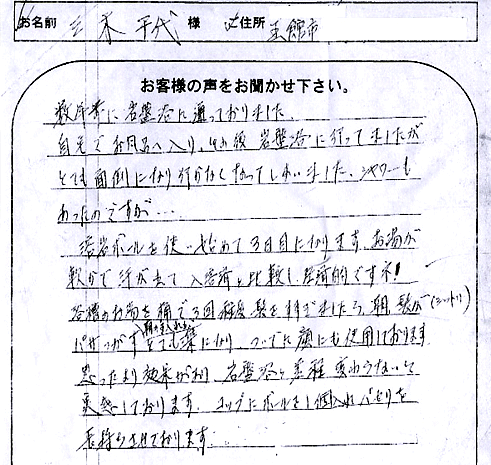 お名前 三木 千代 様 ご住所 函館市
お客様の声をお聞かせ下さい。
数年来に岩盤浴に通っておりました。
自宅でお風呂へ入り、その後 岩盤浴に行ってましたが
とても面倒になり行かなくなってしまいました、シャワーも
あったのですが・・・
溶岩ボールを使い始めて3日目になります。お湯が
軟かで汗が出て入浴剤と比較し経済的ですネ!
浴槽のお湯を桶で3回程度髪をすすぎましたら、朝、髪が(シットリ)
パサつかず とても楽になり、ついでに顔にも使用しております
思ったより効果があり、岩盤浴と差程変わらないと
実感しております。コップにボールを1個入れパセリを
長持ちさせております。